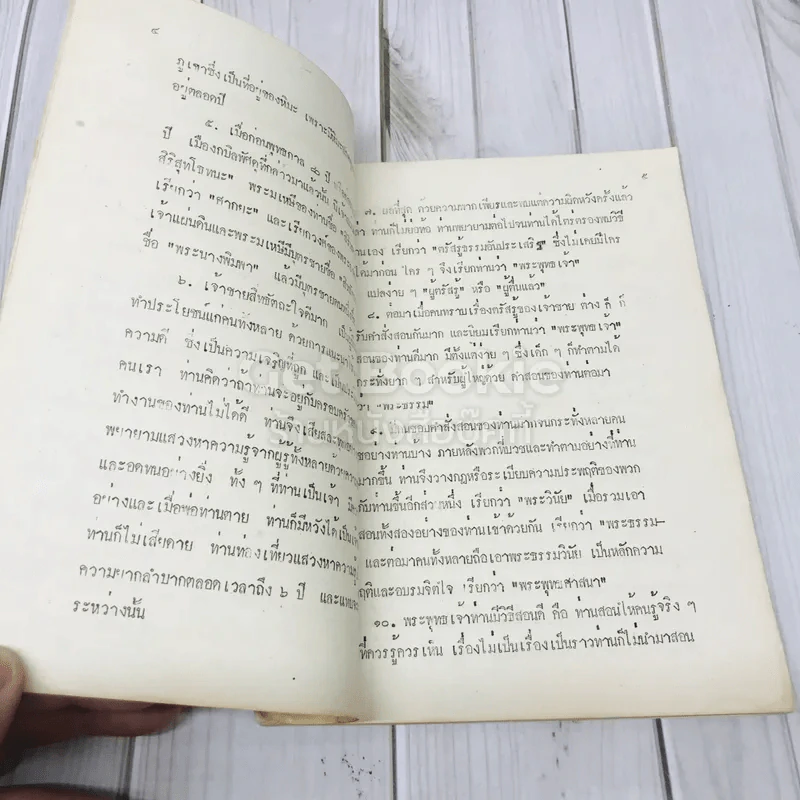 ๔
ภูเขาซึ่งเป็นที่อยู่ของหิมะ เพราะมีหิมะ
อยู่ตลอดปี
๕. เมื่อก่อนพุทธกาล ๘๐ ปี
ปี เมืองกบิลพัศดุ์ที่กล่าวมาแล้วนั้น มีเจ้า
สิริสุทโธทนะ" พระมเหษีของท่านชื่อ
เรียกว่า "ศากยะ" และเรียกวงศ์ของพระ
เจ้าแผ่นดินและพระมเหษีมีบุตรชายชื่อ
ชื่อ "พระนางพิมพา" แล้วมีบุตรชายคนหนึ่งชื่อ
๖. เจ้าชายสิทธัตถะใจดีมาก เป็นผู้
ทำประโยชน์แก่คนทั้งหลาย ด้วยการแนะนำ
ความดี ซึ่งเป็นความเจริญที่ถูก และเป็น
คนเรา ท่านคิดว่าถ้าท่านจะอยู่กับครอบครัว
ทำงานของท่านไม่ได้ดี ท่านจึงเสียสละ
พยายามแสวงหาความรู้จากผู้รู้ทั้งหลายด้วยความ
และอดทนอย่างยิ่ง ทั้ง ๆ ที่ท่านเป็นเจ้า มี
อย่างและเมื่อพ่อท่านตาย ท่านก็มีหวังได้เป็น
ท่านก็ไม่เสียดาย ท่านท่องเที่ยวแสวงหาความรู้
ความยากลำบากตลอดเวลาถึง ๖ ปี และ
ระหว่างนั้น
๕
๗. ผลที่สุด ด้วยความพากเพียรและพบแต่ความผิดหวังครั้งแล้ว
เล่า ท่านก็ไม่ย่อท้อ ท่านพยายามต่อไปจนท่านได้ไตร่ตรองพบวิธี
ท่านเอง เรียกว่า "ตรัสรู้ธรรมอันประเสริฐ" ซึ่งไม่เคยมีใคร
ได้มาก่อน ใคร ๆ จึงเรียกท่านว่า "พระพุทธเจ้า"
แปลง่าย ๆ "ผู้ตรัสรู้" หรือ "ผู้ตื่นแล้ว"
๘. ต่อมาเมื่อคนทราบเรื่องตรัสรู้ของเจ้าชาย ต่าง ดี ก็
รับคำสั่งสอนกันมาก และนิยมเรียกท่านว่า "พระพุทธเจ้า"
สอนของท่านดีมาก มีตั้งแต่ง่าย ๆ ซึ่งเด็ก ๆ ก็ทำตามได้
กระทั่งยาก ๆ สำหรับผู้ใหญ่ด้วย คำสอนของท่านต่อมา
ว่า "พระธรรม"
๙. มีคนชอบคำสั่งสอนของท่านมากจนกระทั่งหลายคน
อย่างท่านบาง ภายหลังพวกที่บวชและทำตามอย่างที่ท่าน
มากขึ้น ท่านจึงวางกฎหรือระเบียบความประพฤติของพวก
กับท่านขึ้นอีกส่วนหนึ่ง เรียกว่า "พระวินัย" เมื่อรวมเอา
สอนทั้งสองอย่างของท่านเข้าด้วยกัน เรียกว่า "พระธรรม—
และต่อมาคนทั้งหลายถือเอาพระธรรมวินัย เป็นหลักความ
ฤติและอบรมจิตใจ เรียกว่า "พระพุทธศาสนา"
๑๐. พระพุทธเจ้าท่านมีวิธีสอนดี คือ ท่านสอนให้คนรู้จริง ๆ
ที่ควรรู้ควรเห็น เรื่องไม่เป็นเรื่องเป็นราวท่านก็ไม่นำมาสอน
Get Bookie
ร้านหนังสือบุ๊คกี้